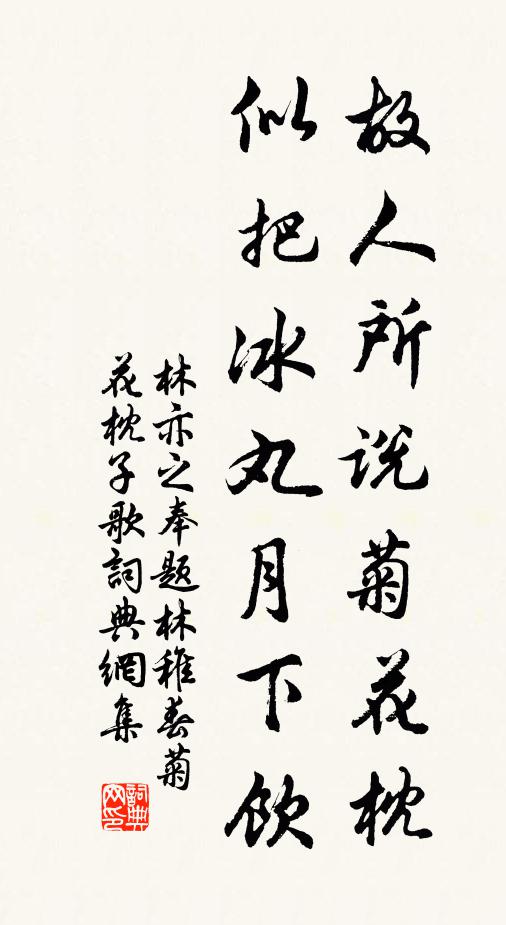 故人所说菊花枕
似把冰丸月下饮
林亦之奉题林稚春菊
花枕子歌詞典網集
詞典网印